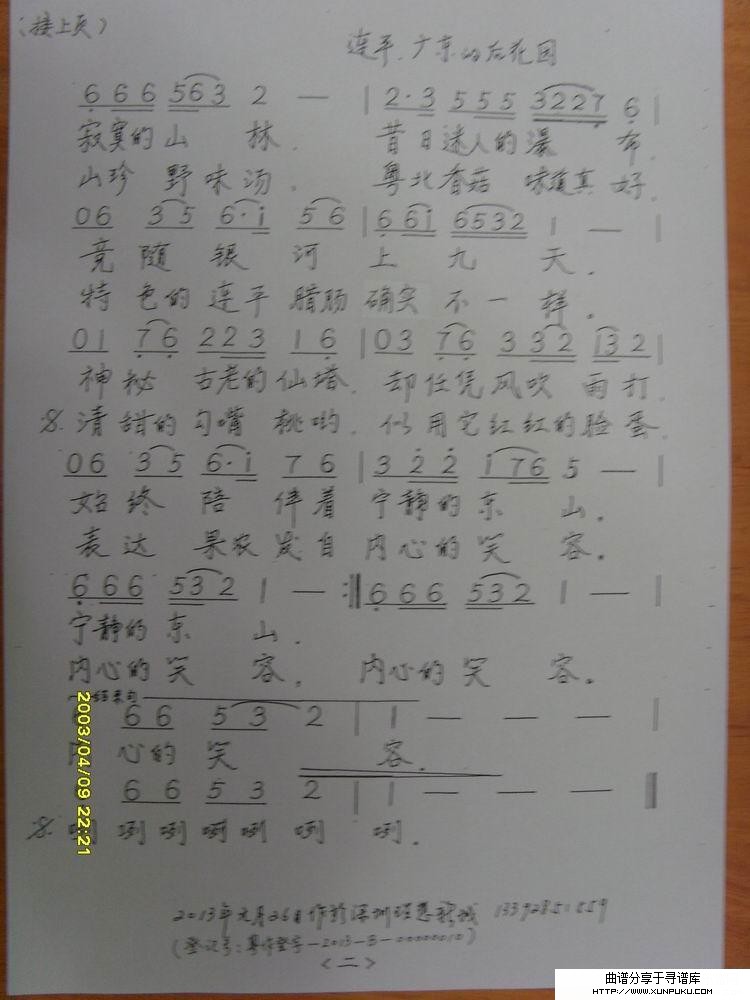 （接上页）
连平，广东的后花园
6 666 563 2 — | 2·3 555 3227 6 |
寂寞的山 林． 昔日迷人的瀑 布．
山珍 野味汤． 粤北香菇 味道真 好．
06 35 6·i 56 | 66i 6532 1 — |
竟随 银 河 上 九 天．
特色的连平 腊肠 确实 不一 样．
01 76 223 16 | 03 76 332 132 |
神秘 古老的仙塔． 却任凭风吹 雨打．
清甜的 勾嘴 桃哟． 似用它红红的脸蛋．
06 35 6·i 76 | 3 22 i76 5 — |
始终 陪 伴着 宁静的东 山．
表达 果农发自 内心的笑 容．
666 532 1 — :‖ 666 532 1 — |
宁静的东 山．
内心的笑 容． 内心的笑 容．
结束句
66 5 3 2 | 1 — — — |
内 心的 笑 容．
66 53 2 | 1 — — — ‖
咧 咧 咧 咧 咧 咧 咧．
2003/04/09 22:21
2013年元月26日作於深圳理想新城
（登记号：粤作登字—2013—B—00000010）
＜二＞
曲谱分享于寻谱库
HTTP://WWW.XUNPUKU.COM